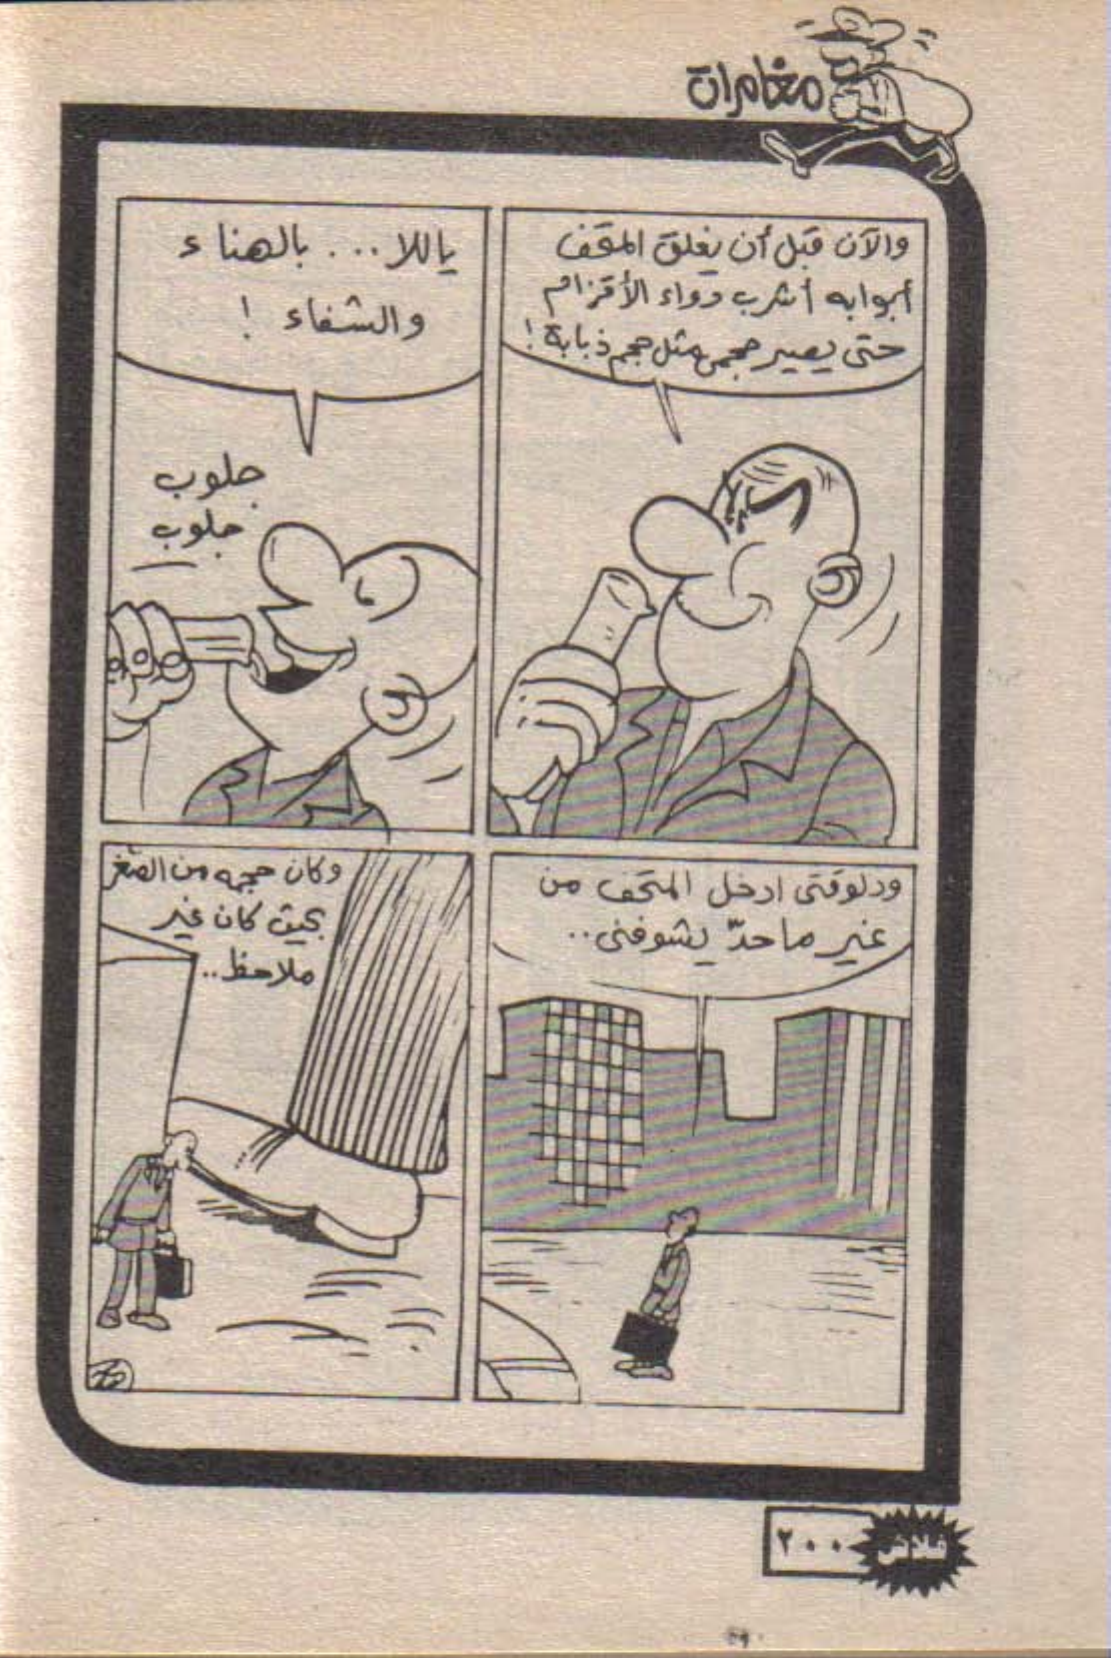 مغامرات
والآن قبل أن يغلق المتحف
أبوابه أشرب دواء الأقزام
حتى يصير حجمى مثل حجم ذبابة !
ياللا ... بالهناء
والشفاء !
جلوب
جلوب
ودلوقتى ادخل المتحف من
غير ما حدّ يشوفنى ..
وكان حجمه من الصغر
بحيث كان غير
ملاحظ ..
فلاش
٢٠٠